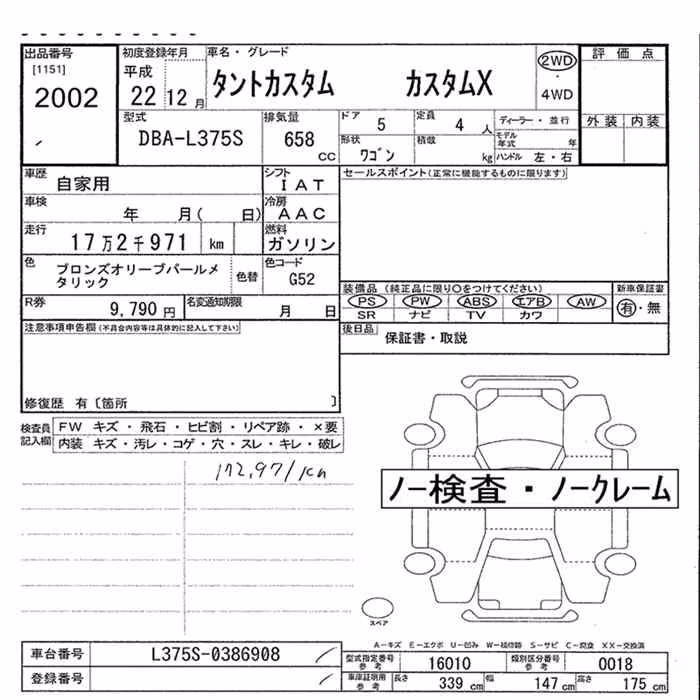 出品番号
[1151]
2002
初度登録年月
平成
22 12 月
車名・グレード
タントカスタム カスタムX
2WD
・
4WD
評価点
外装 内装
型式
DBA-L375S
排気量
658
CC
ドア 5
定員 4 人
形状 ワゴン
積載 kg
ディーラー・並行
モデル年式 年
ハンドル 左・右
車歴
自家用
シフト
IAT
車検
年 月( 日)
冷房
AAC
走行
17万2千971 km
燃料
ガソリン
色
ブロンズオリーブパールメ
タリック
色替
色コード
G52
R券
9,790 円
名変通知期限
月 日
セールスポイント(正常に機能するものに限ります)
装備品 (純正品に限り○をつけてください)
PS PW ABS エアB AW
SR ナビ TV カワ
新車保証書
有・無
後日品
保証書・取説
注意事項申告欄(不具合内容等は具体的に記入して下さい)
修復歴 有〔箇所 〕
検査員
記入欄
FW キズ・飛石・ヒビ割・リペア跡・×要
内装 キズ・汚レ・コゲ・穴・スレ・キレ・破レ
172,971km
ノー検査・ノークレーム
スペア
A-キズ E-エクボ U-凹み W-補修跡 S-サビ C-腐食 XX-交換済
車台番号
L375S-0386908
登録番号
型式指定番号
参考
16010
類別区分番号
参考
0018
車庫証明用
参考
長さ 339 cm
幅 147 cm
高さ 175 cm